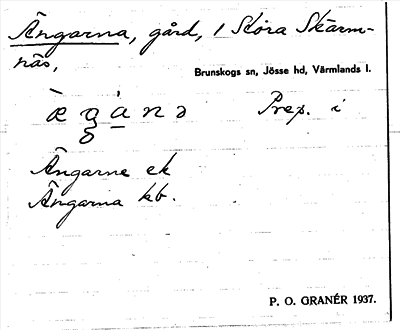 Ängarna, gård, i Stora Skärm-
näs,
Brunskogs sn, Jösse hd, Värmlands l.
Prep. i
Ängarne ek
Ängarna kb.
P. O. GRANÉR 1937.